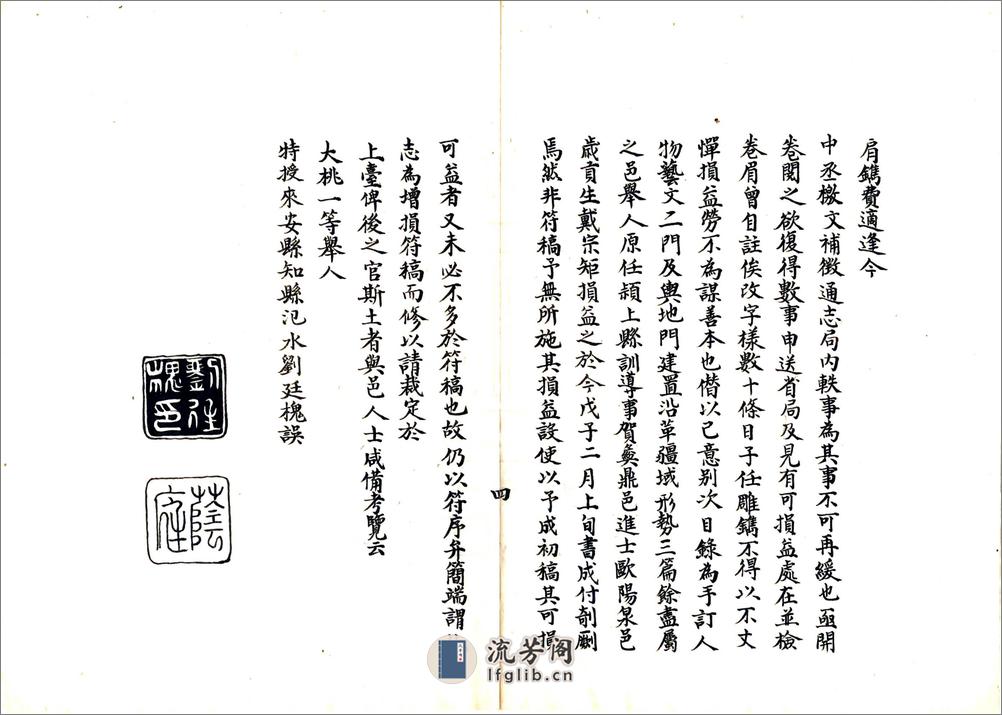 肩鐫費適逢今
中丞檄文補徵通志局内軼事為其事不可再緩也亟開
卷閱之欲復得數事申送省局及見有可損益處在並檢
卷眉曾自註俟改字樣數十條日予任雕鐫不得以不文
憚損益勞不為謀善本也僭以己意别次目錄為手訂人
物藝文二門及輿地門建置沿革疆域形勢三篇餘盡屬
之邑舉人原任潁上縣訓導事賀彝鼎邑進士歐陽泉邑
歲貢生戴宗矩損益之於今戊子二月上旬書成付剞劂
焉然非符稿予無所施其損益設使以予成初稿其可損
四
可益者又未必不多於符稿也故仍以符序弁簡端謂
志為增損符稿而修以請裁定於
上臺俾後之官斯土者與邑人士咸備考覽云
大桃一等舉人
特授來安縣知縣氾水劉廷槐誤
劉廷槐印
蔭庭
流芳阁
lfglib.cn